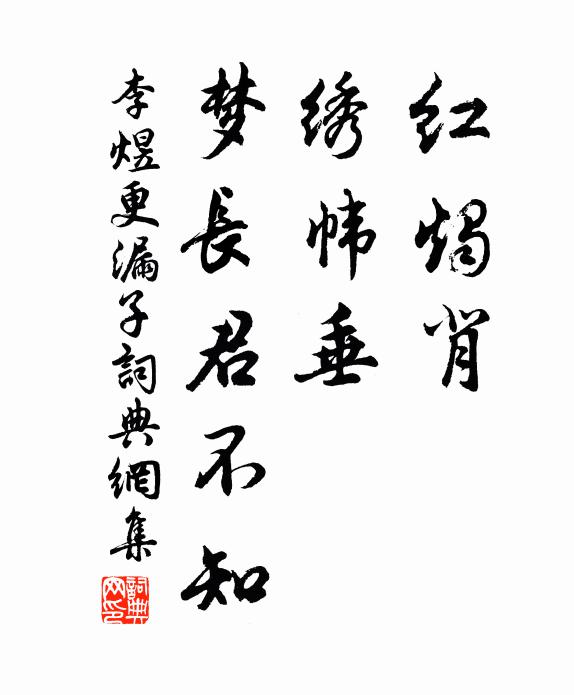 红燭背
绣帏垂
梦長君不知
李煜更漏子詞典網集
詞典网印